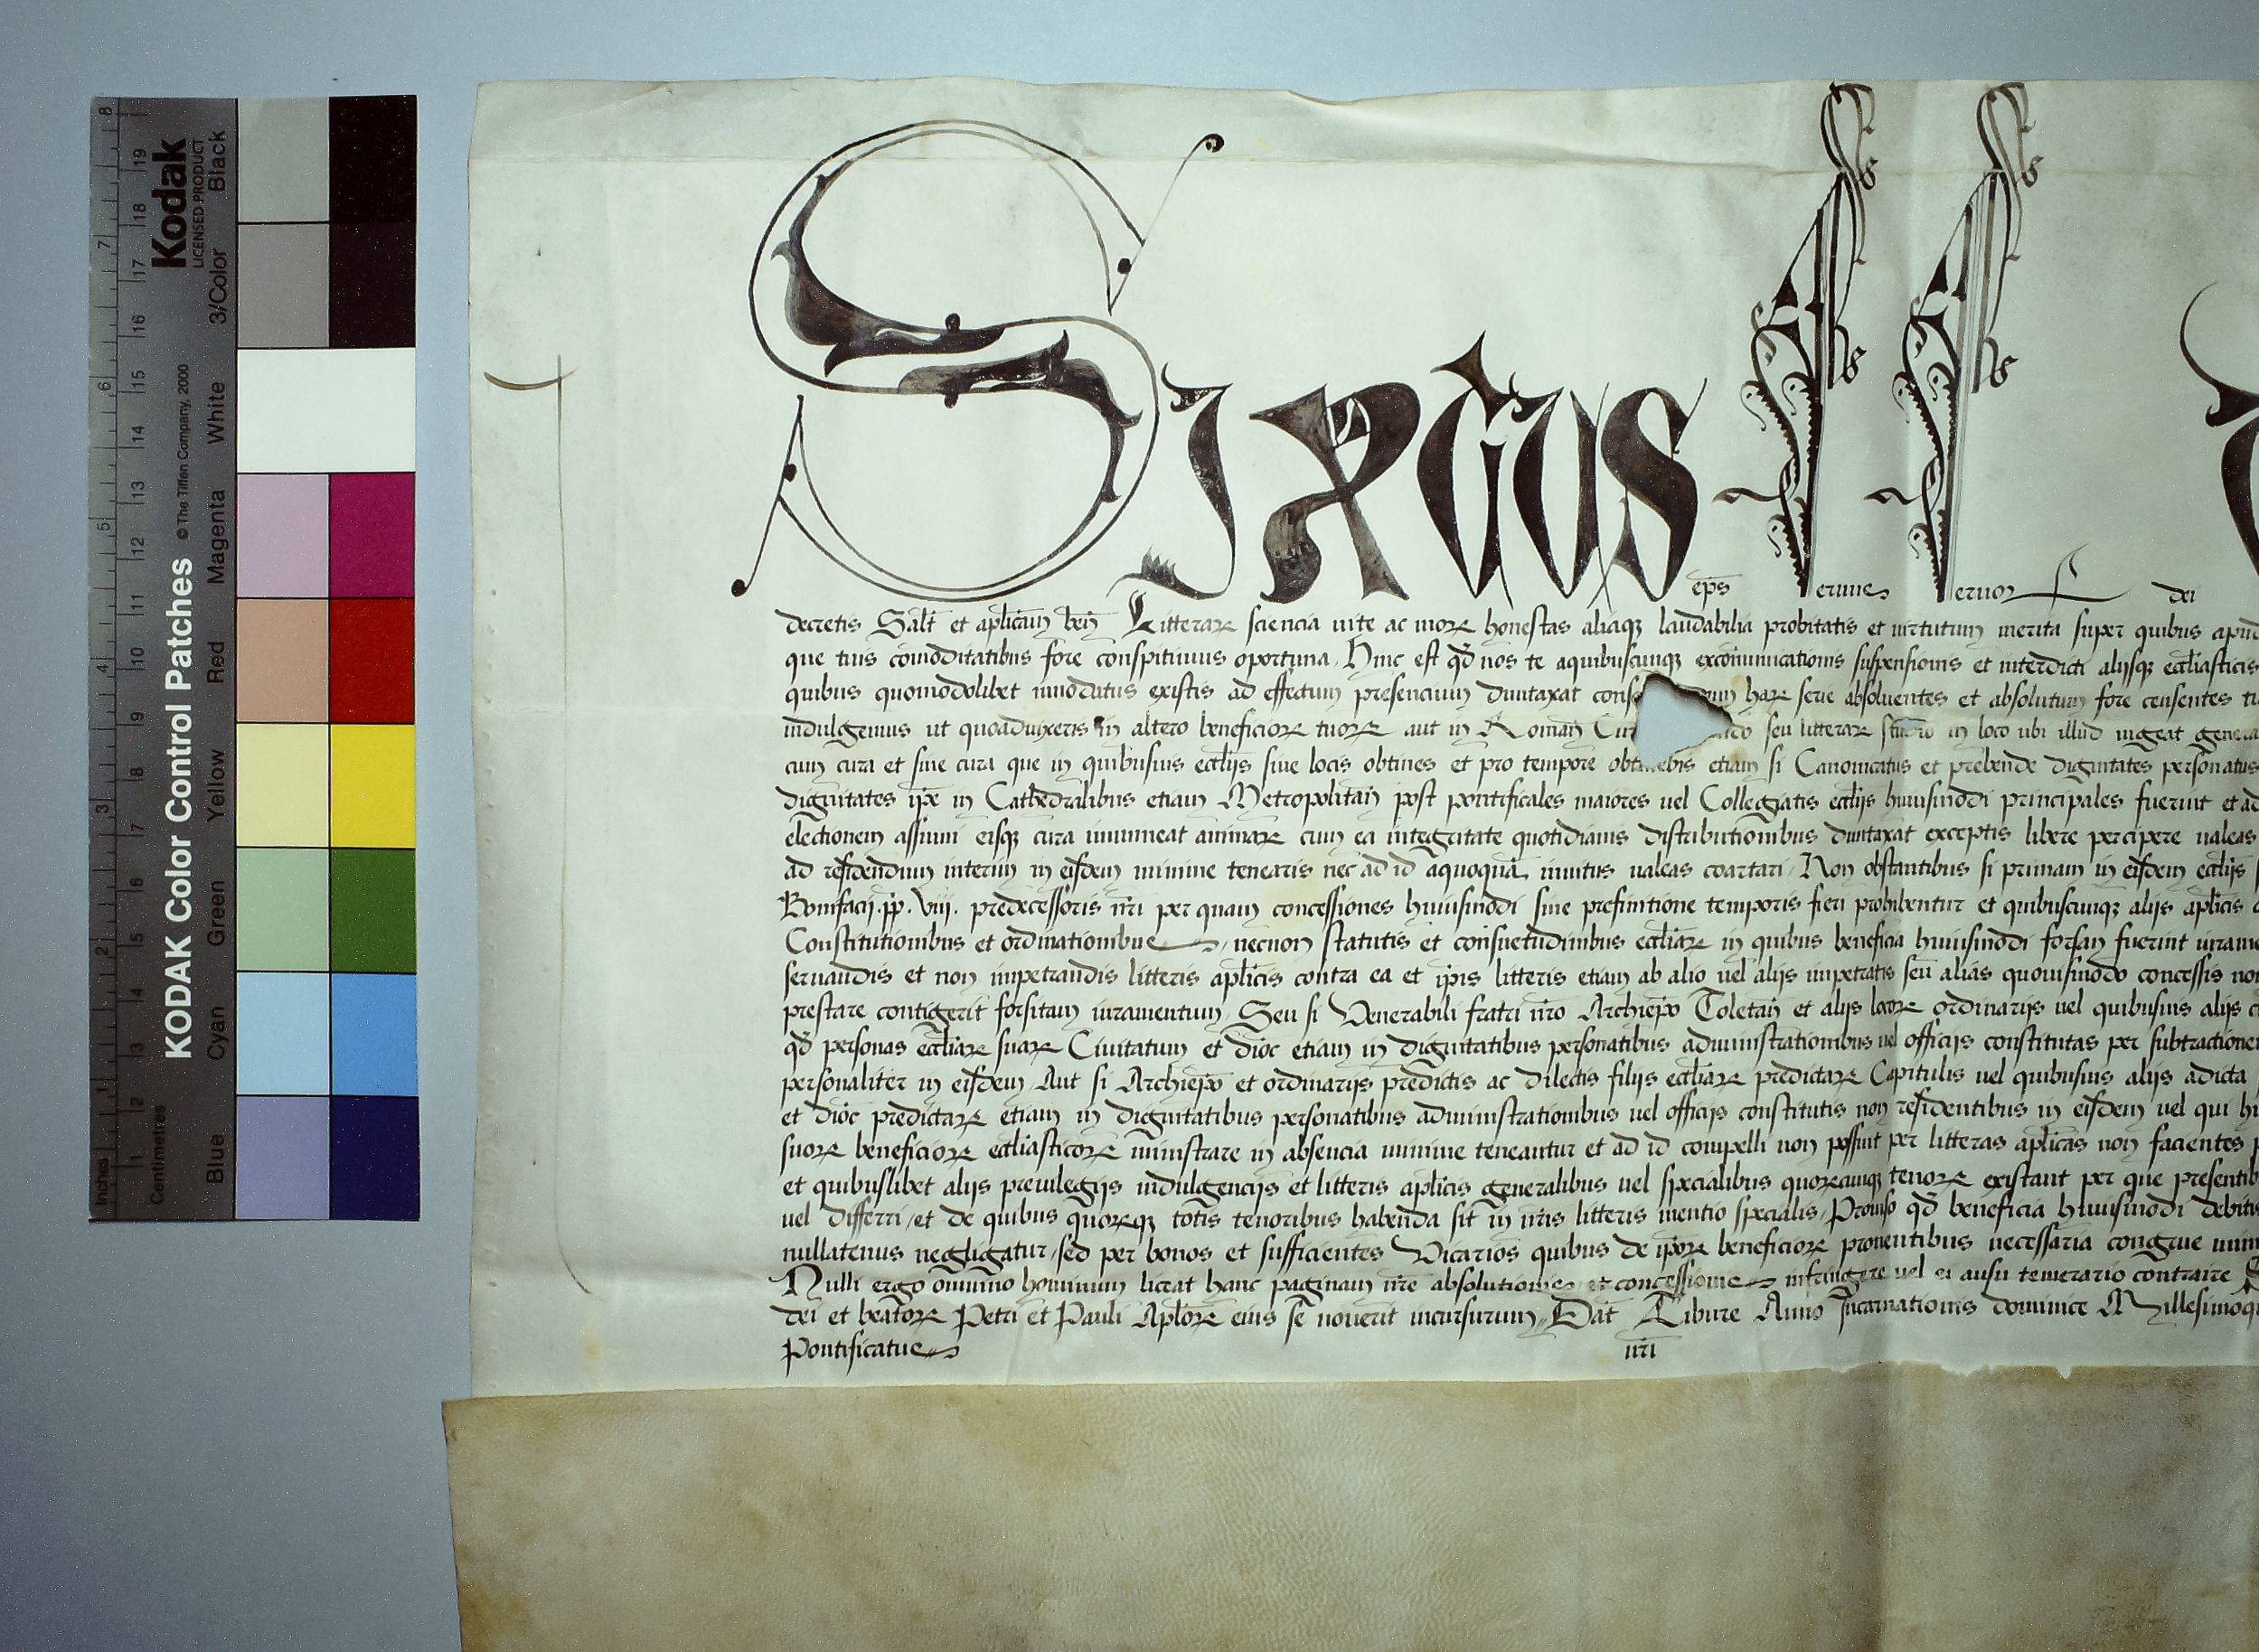 KODAK Color Control Patches
Kodak
LICENSED PRODUCT
© The Tiffen Company, 2000
Inches 1 2 3 4 5 6 7 8
Centimetres 1 2 3 4 5 6 7 8 9 10 11 12 13 14 15 16 17 18 19
Blue Cyan Green Yellow Red Magenta White 3/Color Black
Sixtus eps seruus seruor dei
decretis Salt et aplicam ben Litterar sciencia uite ac mor honestas aliaq laudabilia probitatis et uirtutum merita super quibus apud
que tuis comoditatibus fore conspicimus oportuna Hinc est qd nos te aquibuscunq excomunicationis suspensionis et interdicti alijsq eccliasticis
quibus quomodolibet innodatus existis ad effectum presencium duntaxat conse har serie absoluentes et absolutum fore censentes
indulgemus ut quoaduixeris in altero beneficior tuor aut in Roman seu litterar studio in loco ubi illud uigeat
cum cura et sine cura que in quibusuis ecclijs siue locis obtines et pro tempore obtinebis etiam si Canonicatus et prebende dignitates personatus
dignitates ipe in Cathedralibus etiam Metropolitan post pontificales maiores uel Collegiatis ecclijs huiusmodi principales fuerint et ad
electionem assumi eisq cura immineat animar cum ea integritate quotidianis distributionibus duntaxat exceptis libere percipere ualeas
ad residendum interim in eisdem minime tenearis nec ad id aquoqua inuitus ualeas coartari Non obstantibus si primam in eisdem ecclijs
Bonifacij .pp. viij. predecessoris nri per quam concessiones huiusmodi sine prefinitione temporis fieri prohibentur et quibuscunq alijs aplicis
Constitutionibus et ordinationibus necnon statutis et consuetudinibus ecclíar in quibus beneficia huiusmodi forsan fuerint
seruandis et non impetrandis litteris aplicis contra ea et ipis litteris etiam ab alio uel alijs impetratis seu alias quouismodo concessis non
prestare contigerit forsitam iuramentum Seu si Venerabili fratri nro Archiepo Toletan et alijs locor ordinarijs uel quibusuis alijs
qd personas eccliar suar Ciuitatum et dioc etiam in dignitatibus personatibus administrationibus uel officijs constitutas per subtractionem
personaliter in eisdem Aut si Archiepo et ordinarijs predictis ac dilectis filijs eccliar predictar Capitulis uel quibusuis alijs adicta
et dioc predictar etiam in dignitatibus personatibus administrationibus uel officijs constitutis non residentibus in eisdem uel qui
suor beneficior eccliasticor ministrare in absencia minime teneantur et ad id compelli non possint per litteras aplicas non facientes
et quibuslibet alijs preuilegijs indulgencijs et litteris aplicis generalibus uel specialibus quorcunq tenor existant per que
uel differri et de quibus quorq totis tenoribus habenda sit in nris litteris mentio specialis Prouiso qd beneficia huiusmodi debitis
nullatenus negligatur sed per bonos et sufficientes Vicarios quibus de ipor beneficior prouentibus necessaria congrue
Nulli ergo omnino hominum liceat hanc paginam nre absolutionis et concessionis infringere uel ei ausu temerario contraire
dei et beator Petri et Pauli Aplor eius se nouerit incursurum Dat Tibure Anno Incarnationis dominice
Pontificatus nri